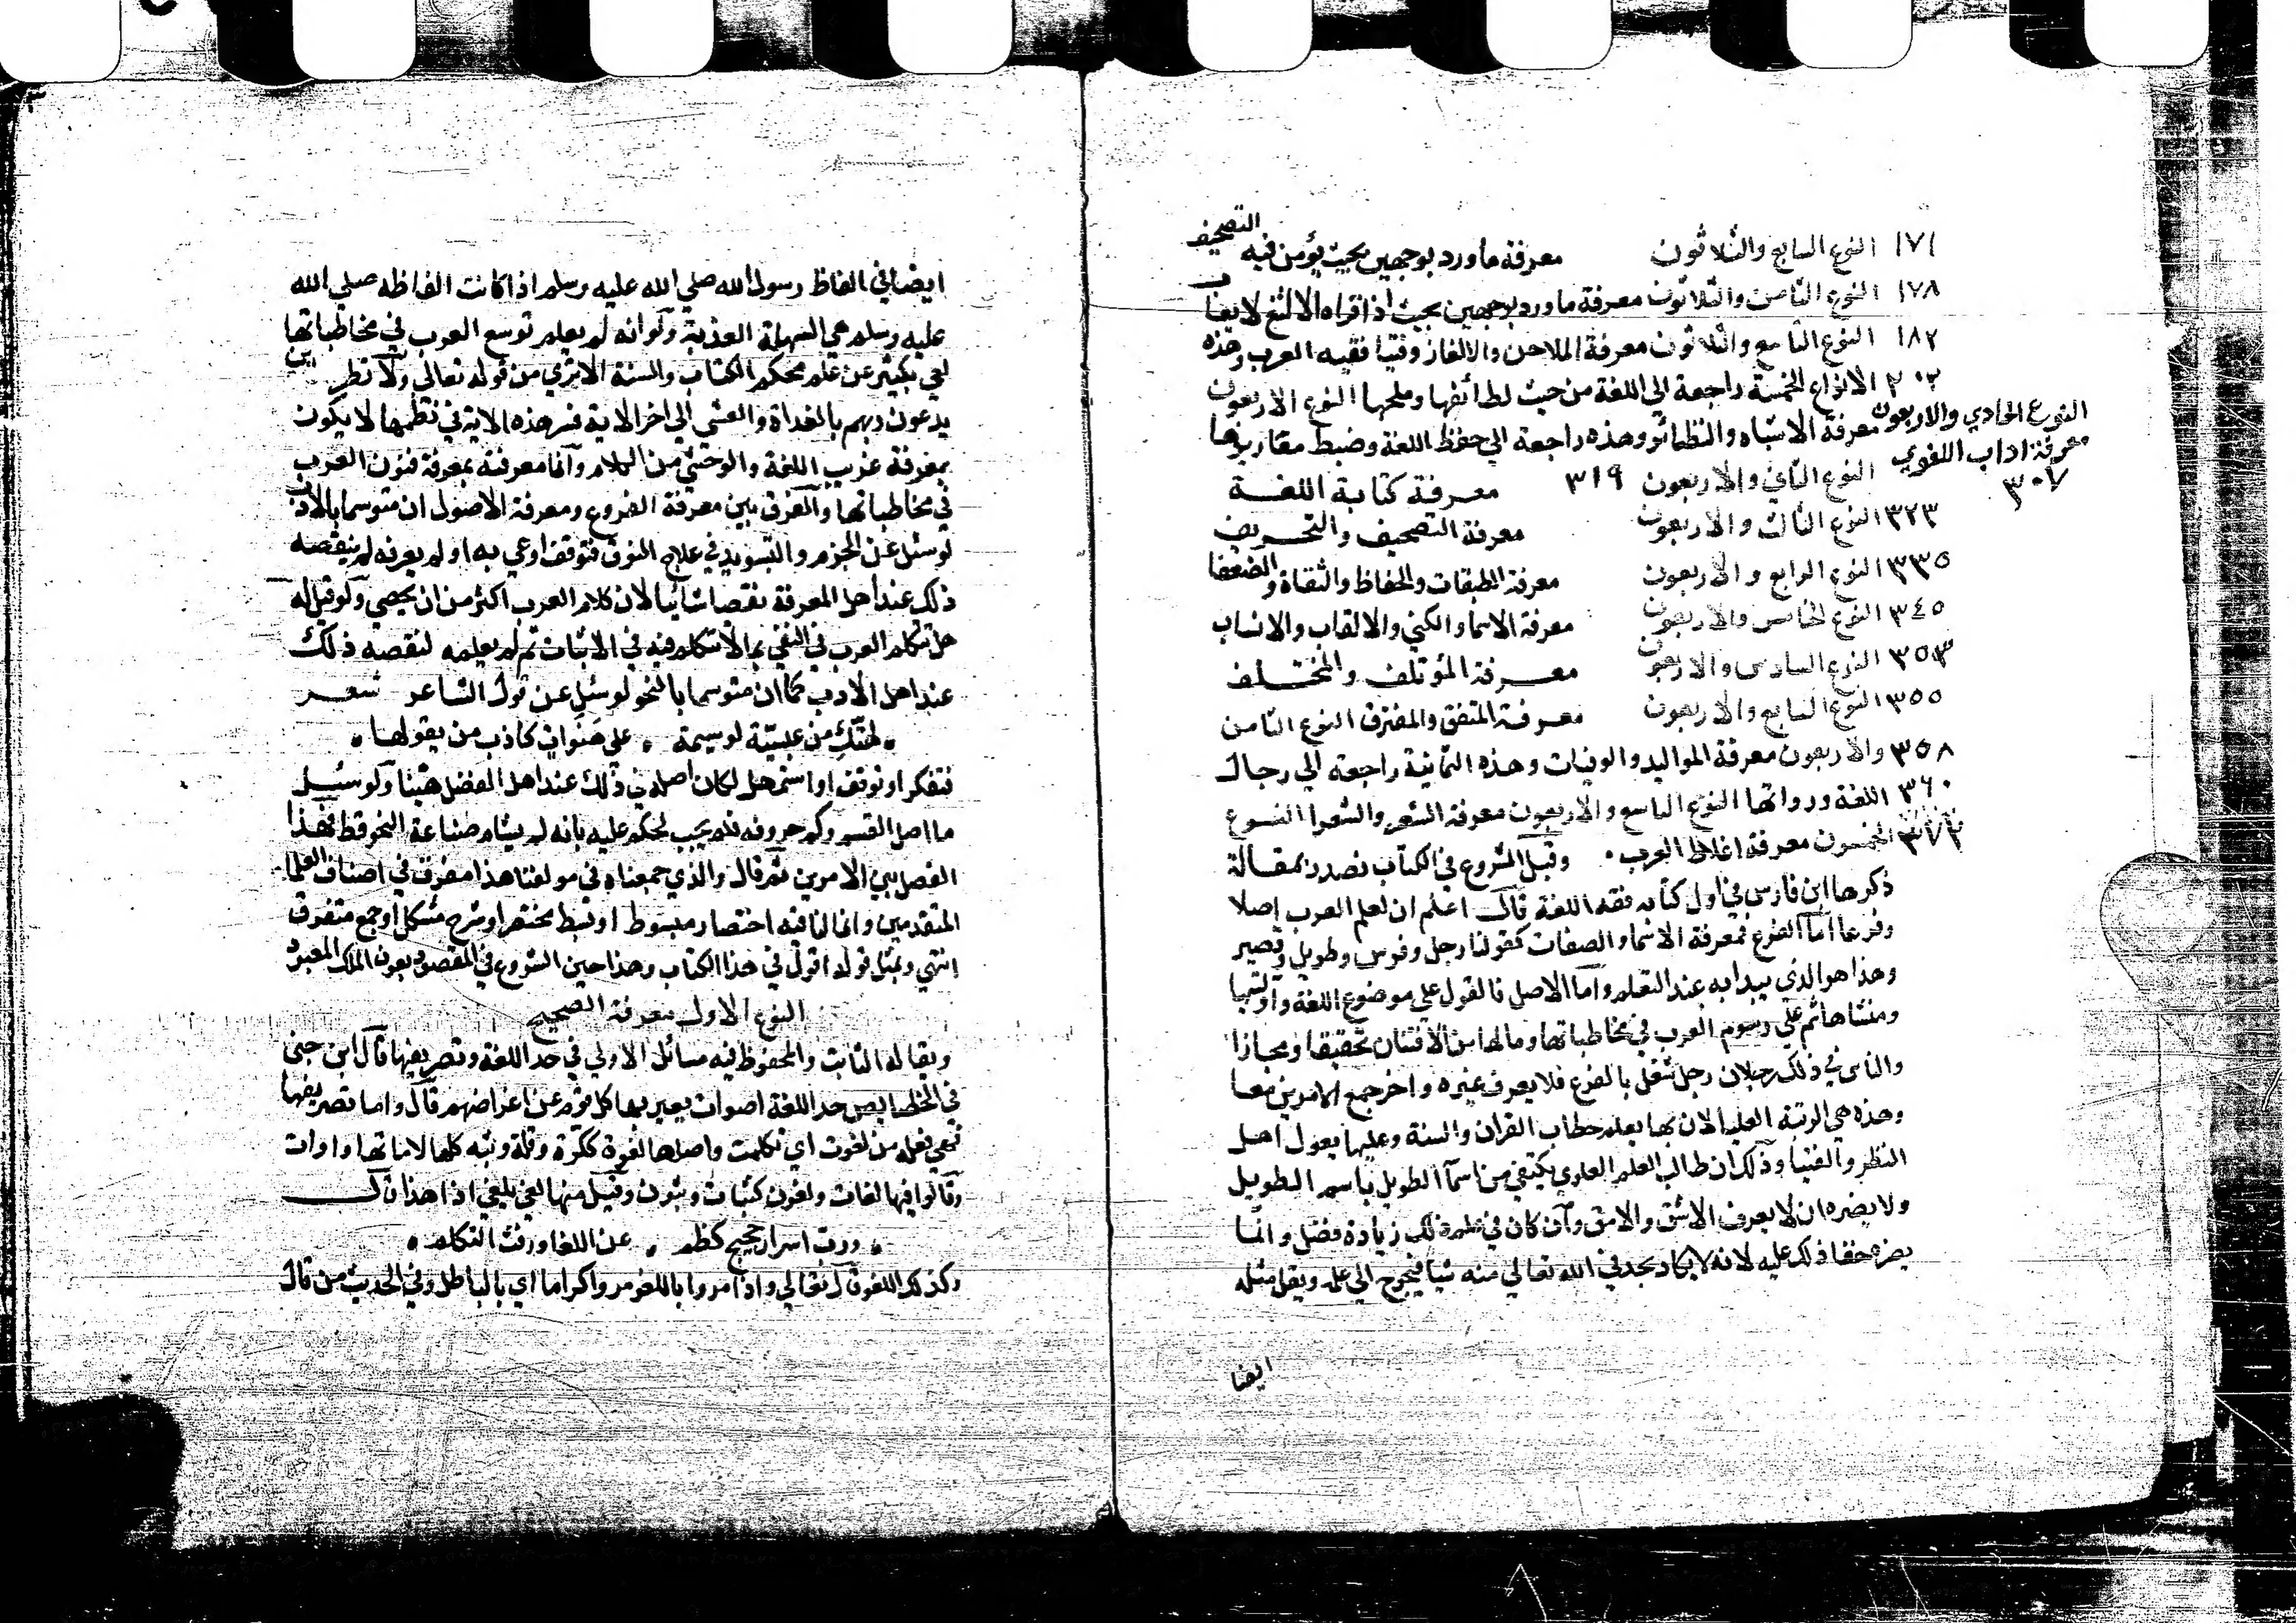 ١٧١ النوع السابع والثلاثون معرفة ما ورد بوجهين بحيث يؤمن فيه التصحيف
١٧٨ النوع الثامن والثلاثون معرفة ما ورد بوجهين بحيث اذا قراه الالثغ لا يعاب
١٨٢ النوع التاسع والثلاثون معرفة الملاحن والالغاز وفتيا فقيه العرب وهذه
٢٠٢ الانواع الخمسة راجعة الى اللغة من حيث لطائفها وملحها النوع الاربعون
معرفة الاشباه والنظائر وهذه راجعة الي حفظ اللغة وضبط مقاربها
النوع الحادي والاربعون
معرفة اداب اللغوي
٣٠٧
النوع الثاني والاربعون ٣١٩ معرفة كتابة اللغة
٣٢٣ النوع الثالث والاربعون معرفة التصحيف والتحريف
٣٣٥ النوع الرابع والاربعون معرفة الطبقات والحفاظ والثقاة والضعفا
٣٤٥ النوع الخامس والاربعون معرفة الاسماء والكني والالقاب والانساب
٣٥٣ النوع السادس والاربعون معرفة المؤتلف والمختلف
٣٥٥ النوع السابع والاربعون معرفة المتفق والمفترق النوع الثامن
٣٥٨ والاربعون معرفة المواليد والوفيات وهذه الثمانية راجعة الي رجال
٣٦٠ اللغة ورواتها النوع التاسع والاربعون معرفة الشعر والشعرا النوع
٣٧٢ الخمسون معرفة اغلاط العرب ٠ وقبل الشروع في الكتاب نصدر بمقالة
ذكرها ابن فارس في اول كتابه فقه اللغة قال اعلم ان لعلم العرب اصلا
وفرعا اما الفرع فمعرفة الاسماء والصفات كقولنا رجل وفرس وطويل وقصير
وهذا هو الذي يبدا به عند التعلم واما الاصل فالقول علي موضوع اللغة واوليتها
ومنشاها ثم علي رسوم العرب في مخاطباتها وما لها من الافتنان تحقيقا ومجازا
والناس في ذلك رجلان رجل شغل بالفرع فلا يعرف غيره واخر جمع الامرين معا
وهذه هي الرتبة العليا لان بها يعلم خطاب القران والسنة وعليها يعول اهل
النظر والفتيا وذلك ان طالب العلم العلوي يكتفي من اسما الطويل باسم الطويل
ولا يضره ان لا يعرف الاشق والامق وان كان في علم ذلك زيادة فضل وانما
يضره خفا ذلك عليه لانه لا يكاد يجد في الله تعالي منه شيا فيحوج الي علمه ويقل مثله
ايضا
ايضا في الفاظ رسول الله صلي الله عليه وسلم اذا كانت الفاظه صلي الله
عليه وسلم هي السهلة العذبة ولو انه لم يعلم توسع العرب في مخاطباتها
لعي بكثير عن علم محكم الكتاب والسنة الا تري من قوله تعالي ولا تطرد الذين
يدعون ربهم بالغداة والعشي الي اخر الاية فسر هذه الاية في نظمها لا يكون
بمعرفة غريب اللغة والوحشي من الكلام وانما معرفته بمعرفة فنون العرب
في مخاطباتها والفرق بين معرفة الفروع ومعرفة الاصول ان متوسما بالادب
لو سئل عن الجزم والتسويد في علاج النوق فتوقف او عي به او لم يعرفه لم ينقصه
ذلك عند اهل المعرفة نقصا شائنا لان كلام العرب اكثر من ان يحصي ولو قيل له
هل تتكلم العرب في النفي بما لا تتكلم فيه في الاثبات ثم لم يعلمه لنقصه ذلك
عند اهل الادب كما ان متوسما بالنحو لو سئل عن قول الشاعر شعر
٠ لهنك من عبسية لوسيمة ٠ علي هنوات كاذب من يقولها ٠
فتفكر او توقف او استمهل لكان اصله في ذلك عند اهل الفضل هينا ولو سئل
ما اصل القسم وكم حروفه فلم يجب لحكم عليه بانه لم يشام صناعة النحو قط فهذا
الفصل بين الامرين ثم قال والذي جمعناه في مولفنا هذا مفرق في اصناف العلما
المتقدمين وانما لنا فيه اختصار مبسوط او بسط مختصر او شرح مشكل او جمع متفرق
انتهي وبمثل قوله اقول في هذا الكتاب وهذا حين الشروع في المقصود بعون الملك المعبود
النوع الاول معرفة الصحيح
ويقال له الثابت والمحفوظ فيه مسائل الاولي في حد اللغة وتصريفها قال ابن جني
في الخصايص حد اللغة اصوات يعبر بها كل قوم عن اغراضهم قال واما تصريفها
فهي فعلة من لغوت اي تكلمت واصلها لغوة ككرة وقلة وثبة كلها لاماتها واوات
وقالوا فيها لغات ولغون كثبات وثبون وقيل منها لغي يلغي اذا هذا قال
٠ ورب اسراب حجيج كظم ٠ عن اللغا ورفث التكلم ٠
وكذلك اللغو قال تعالي واذا مروا باللغو مروا كراما اي بالباطل وفي الحديث من قال